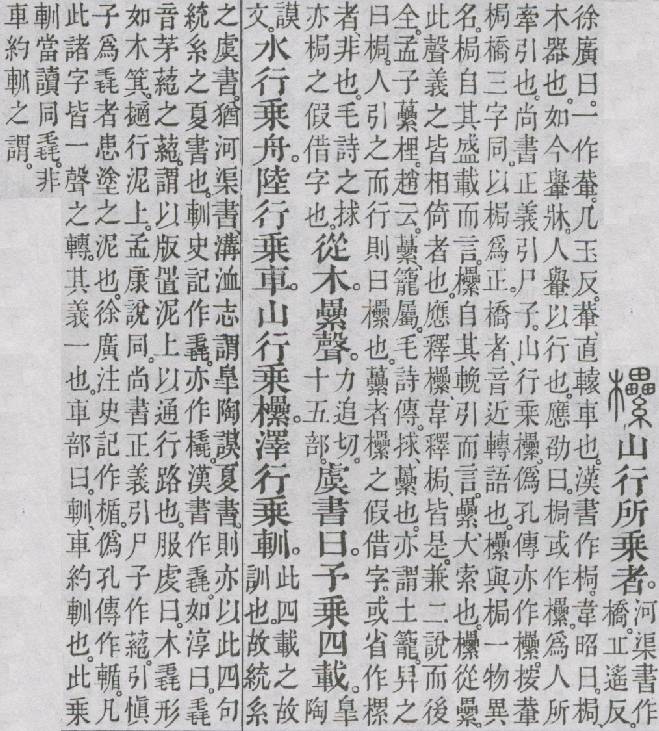 欙山行所乘者。河渠書作
橋。丘遙反。
徐廣曰。一作輂。几玉反。輂、直轅車也。漢書作梮。韋昭曰。梮、
木器也。如今轝牀。人轝以行也。應劭曰。梮或作欙。爲人所
牽引也。尚書正義引尸子。山行乘欙。僞孔傳亦作欙。按輂
梮橋三字同。以梮爲正。橋者、音近轉語也。欙與梮一物異
名。梮自其盛載而言。欙自其輓引而言。纍大索也。欙從纍。
此聲義之皆相倚者也。應釋欙、韋釋梮、皆是。兼二說而後
全。孟子虆梩。趙云。虆、籠屬。毛詩傳。捄、虆也。亦謂土籠。舁之
曰梮。人引之而行則曰欙也。虆者欙之假借字。或省作樏
者、非也。毛詩之捄
亦梮之假借字也。從木。纍聲。力追切。十五部。虞書曰。予乘四載。臯陶
謨文。水行乘舟。陸行乘車。山行乘欙。澤行乘䡅。此四載之故
訓也。故統系
之虞書。猶河渠書、溝洫志謂臯陶謨夏書。則亦以此四句
統系之夏書也。䡅史記作毳。亦作橇。漢書作毳。如淳曰。毳
音茅蕝之蕝。謂以版置泥上以通行路也。服虔曰。木毳形
如木箕。擿行泥上。孟康說同。尚書正義引尸子作蕝。引愼
子爲毳者患塗之泥也。徐廣注史記作楯。僞孔傳作輴。凡
此諸字皆一聲之轉。其義一也。車部曰。䡅、車約䡅也。此乘
䡅當讀同毳。非
車約䡅之謂。